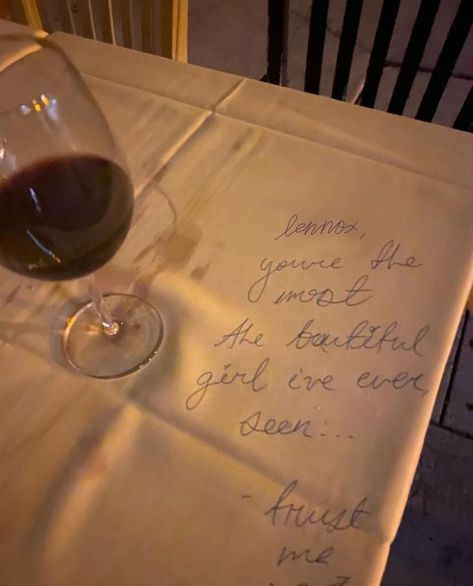 lennox,
you're the
most
the bautiful
girl i've ever
seen...
- trust
me